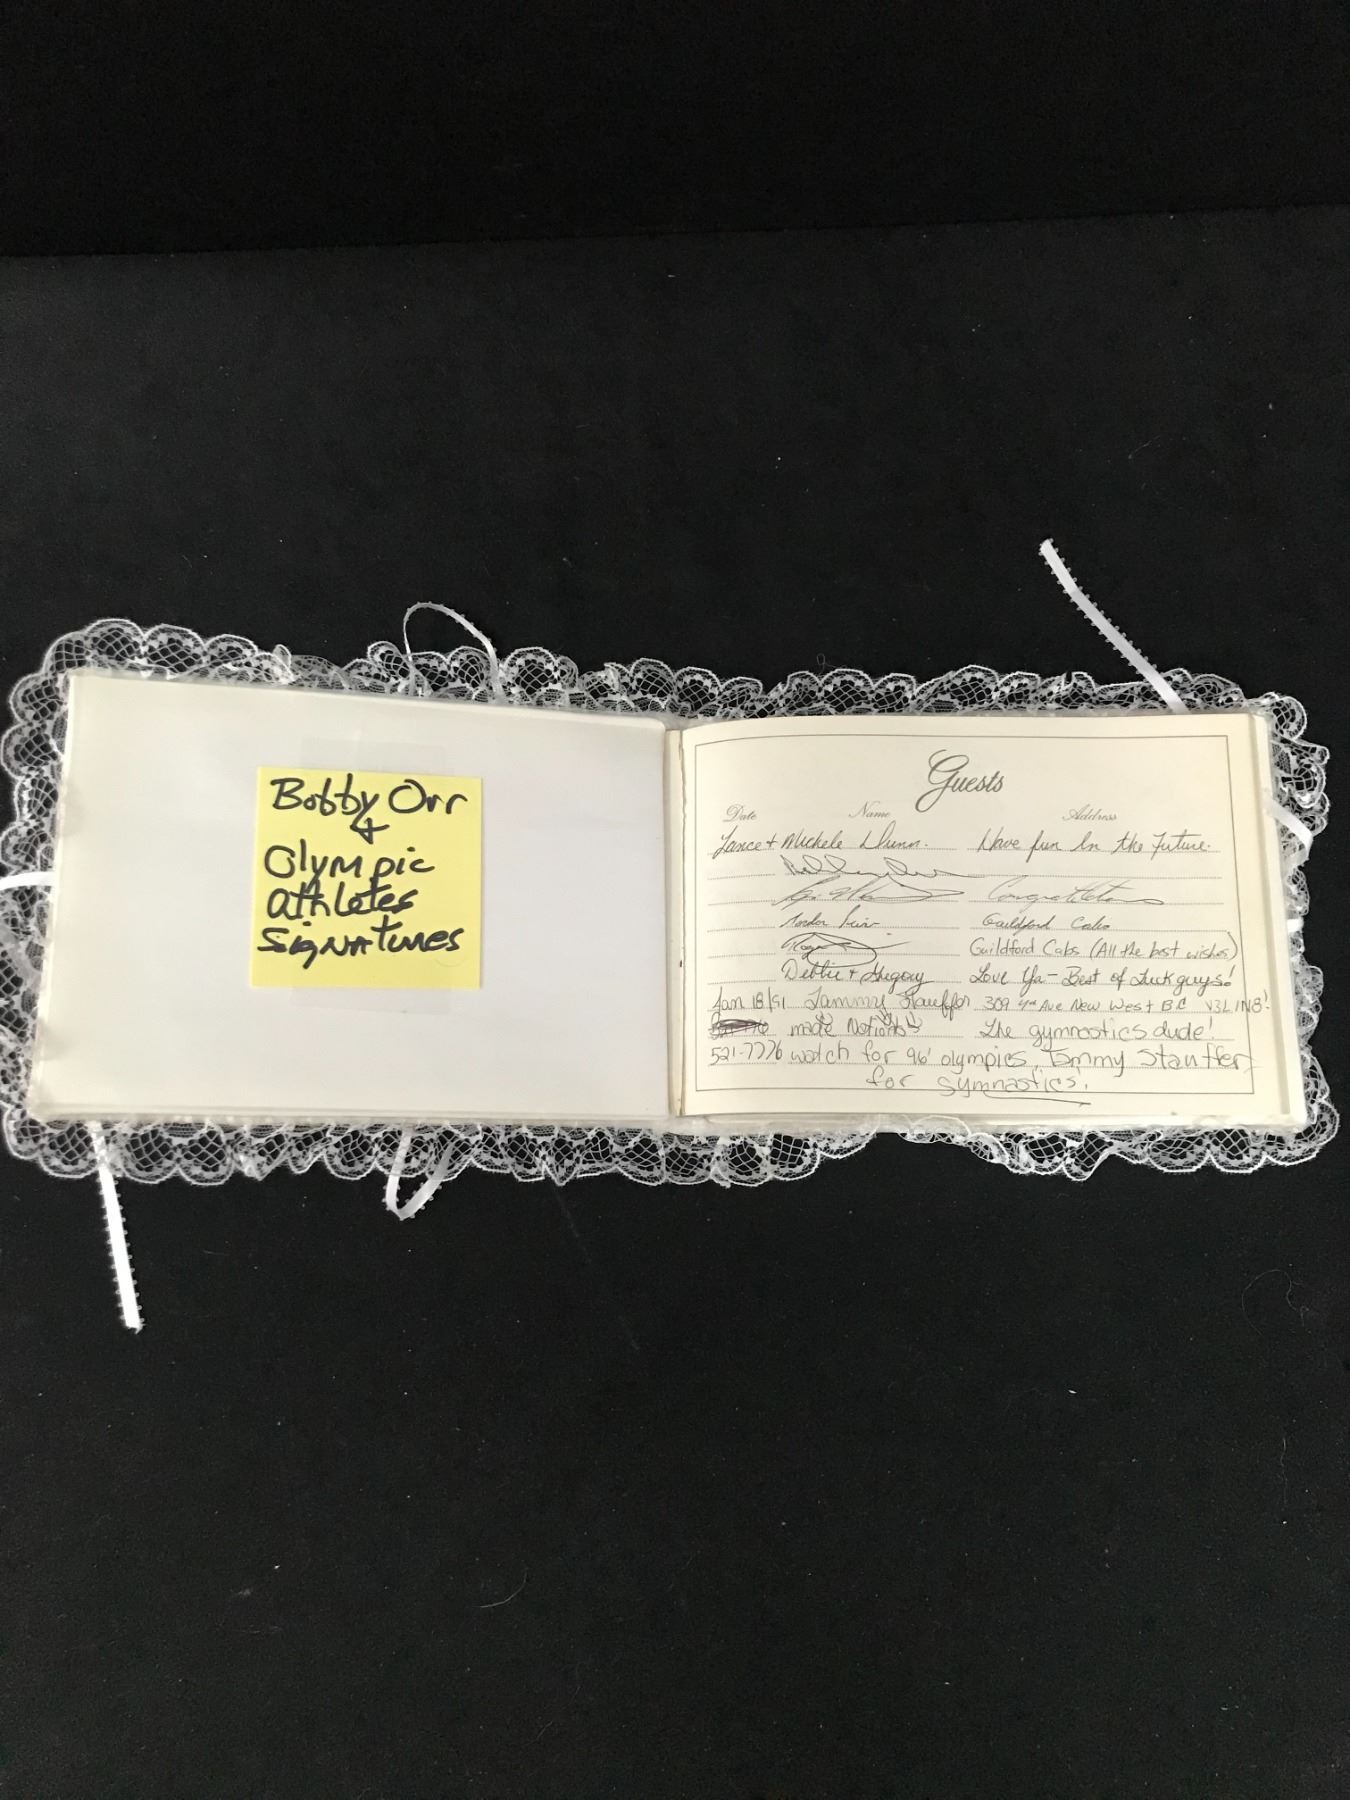 Bobby Orr
+
Olympic
athletes
Signatures
Guests
Date Name Address
Lance + Michele Dunn. Have fun In the Future.
Congratulations
Gordon Guildford Cabs
Roger Guildford Cabs (All the best wishes)
Debbie + Gregory Love Ya - Best of Luck guys!
Jan 18/91 Tammy Stauffer 309 4th Ave New West BC V3L1N8!
made Nationals The gymnastics dude!
521-7776 watch for 96' olympics, Tammy Stauffer
for gymnastics!